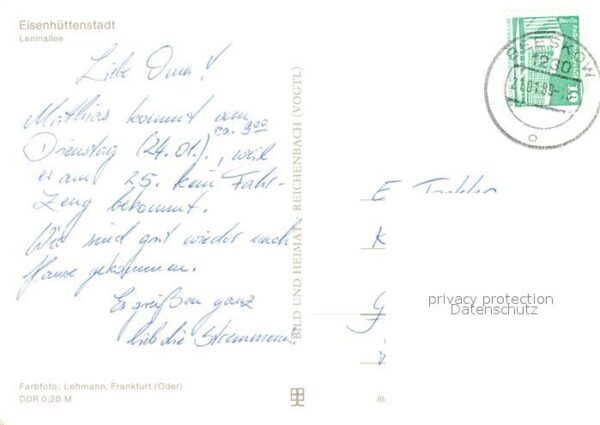 Eisenhüttenstadt
Leninallee
Liebe Oma!
Matthias kommt am
ca. 9⁰⁰
Dienstag (24.01.), weil
er am 25. kein Fahr-
zeug bekommt.
Wir sind gut wieder nach
Hause gekommen.
Es grüßen ganz
lieb die
BILD UND HEIMAT REICHENBACH (VOGTL)
BEESKOW
1230
21.01.89
10
E
K
G
privacy protection
Datenschutz
Farbfoto: Lehmann, Frankfurt (Oder)
DDR 0,20 M